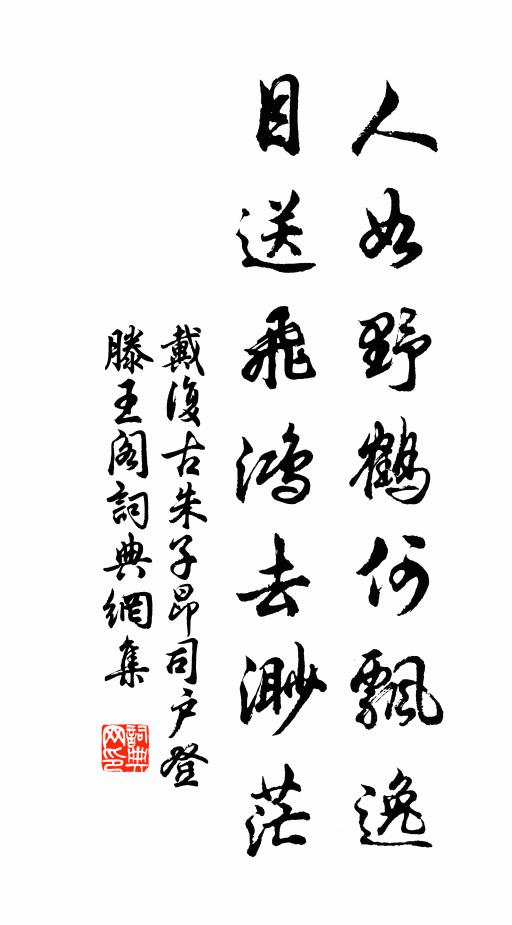 人如野鶴何飄逸
目送飛鴻去渺茫
戴復古朱子昂司户登
滕王阁詞典網集
詞典
网印